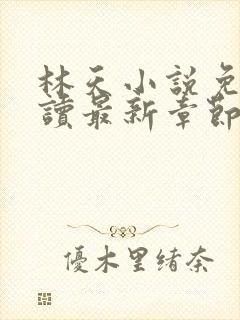 林天小說免
讀最新章節
優木里緒奈